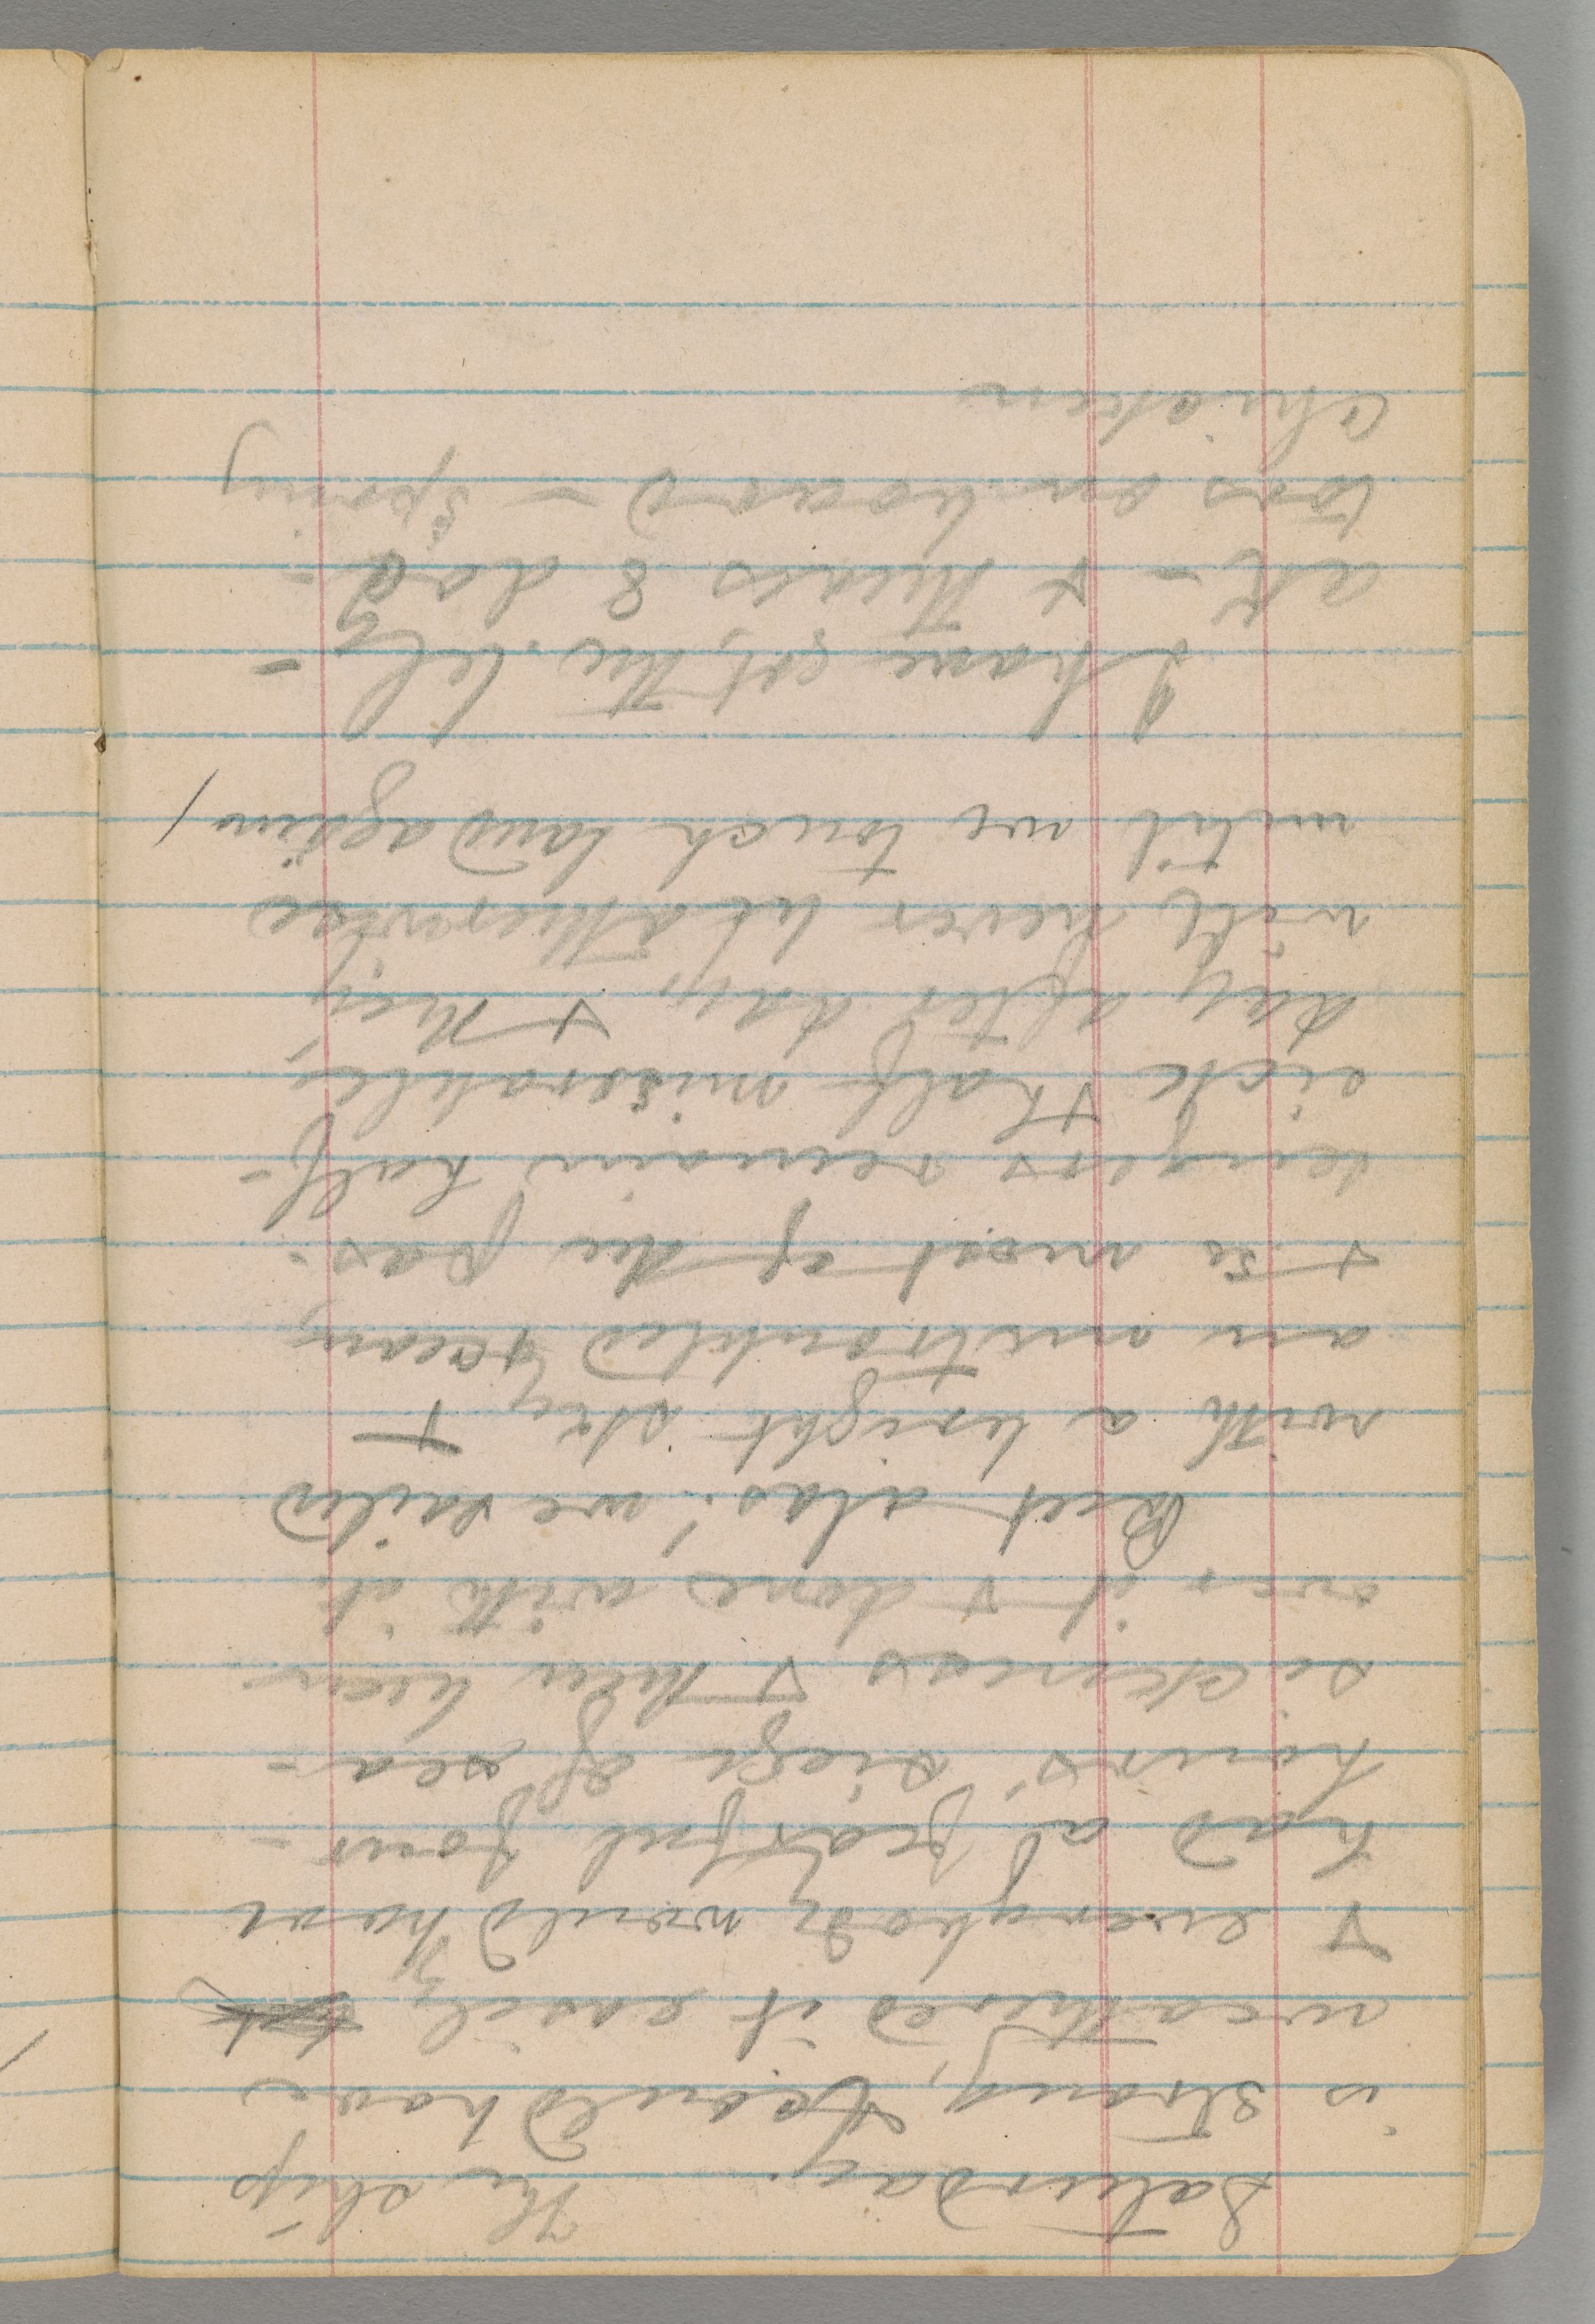 Saturday. The ship
is strong, & could have
weathered it easily,
& everybody would have
had a fearful four-
hours' siege of sea-
sickness & then been
over it & done with it.
But alas! we sailed
with a bright sky &
an untroubled ocean,
& so most of the pas-
sengers remain half-
sick & half miserable,
day after day, & they
will never be otherwise
until we touch land again.
I have got the
ack — & there's 8 dod-
tors on board — spring
chicken